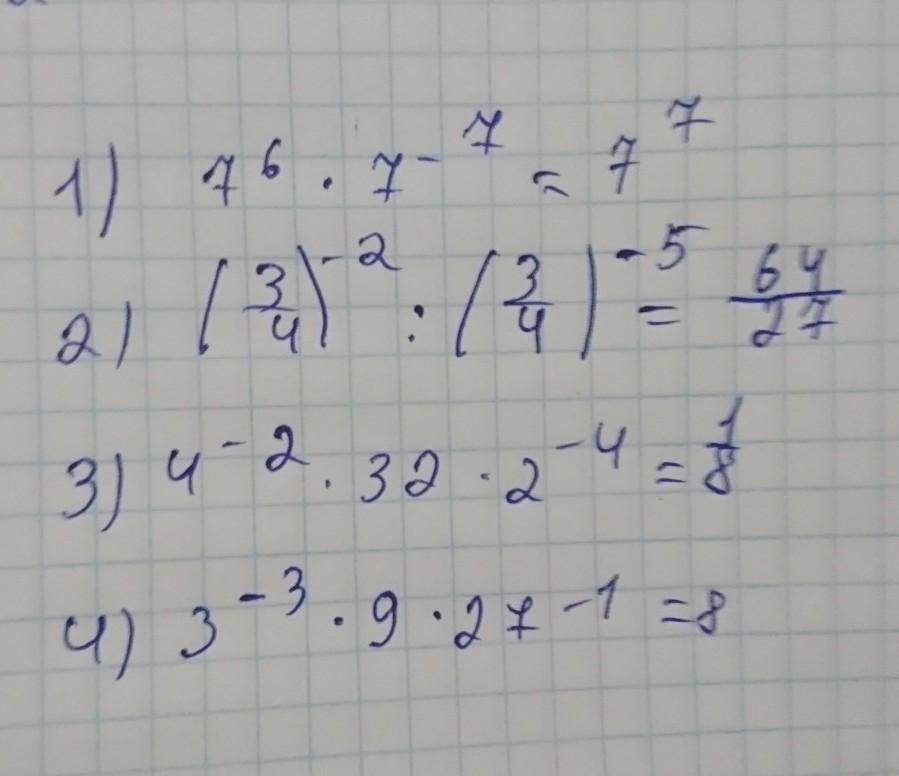 1) 7⁶ · 7⁻⁷ = 7⁷
2) (3/4)⁻² : (3/4)⁻⁵ = 64/27
3) 4⁻² · 32 · 2⁻⁴ = 1/8
4) 3⁻³ · 9 · 27⁻¹ = 8